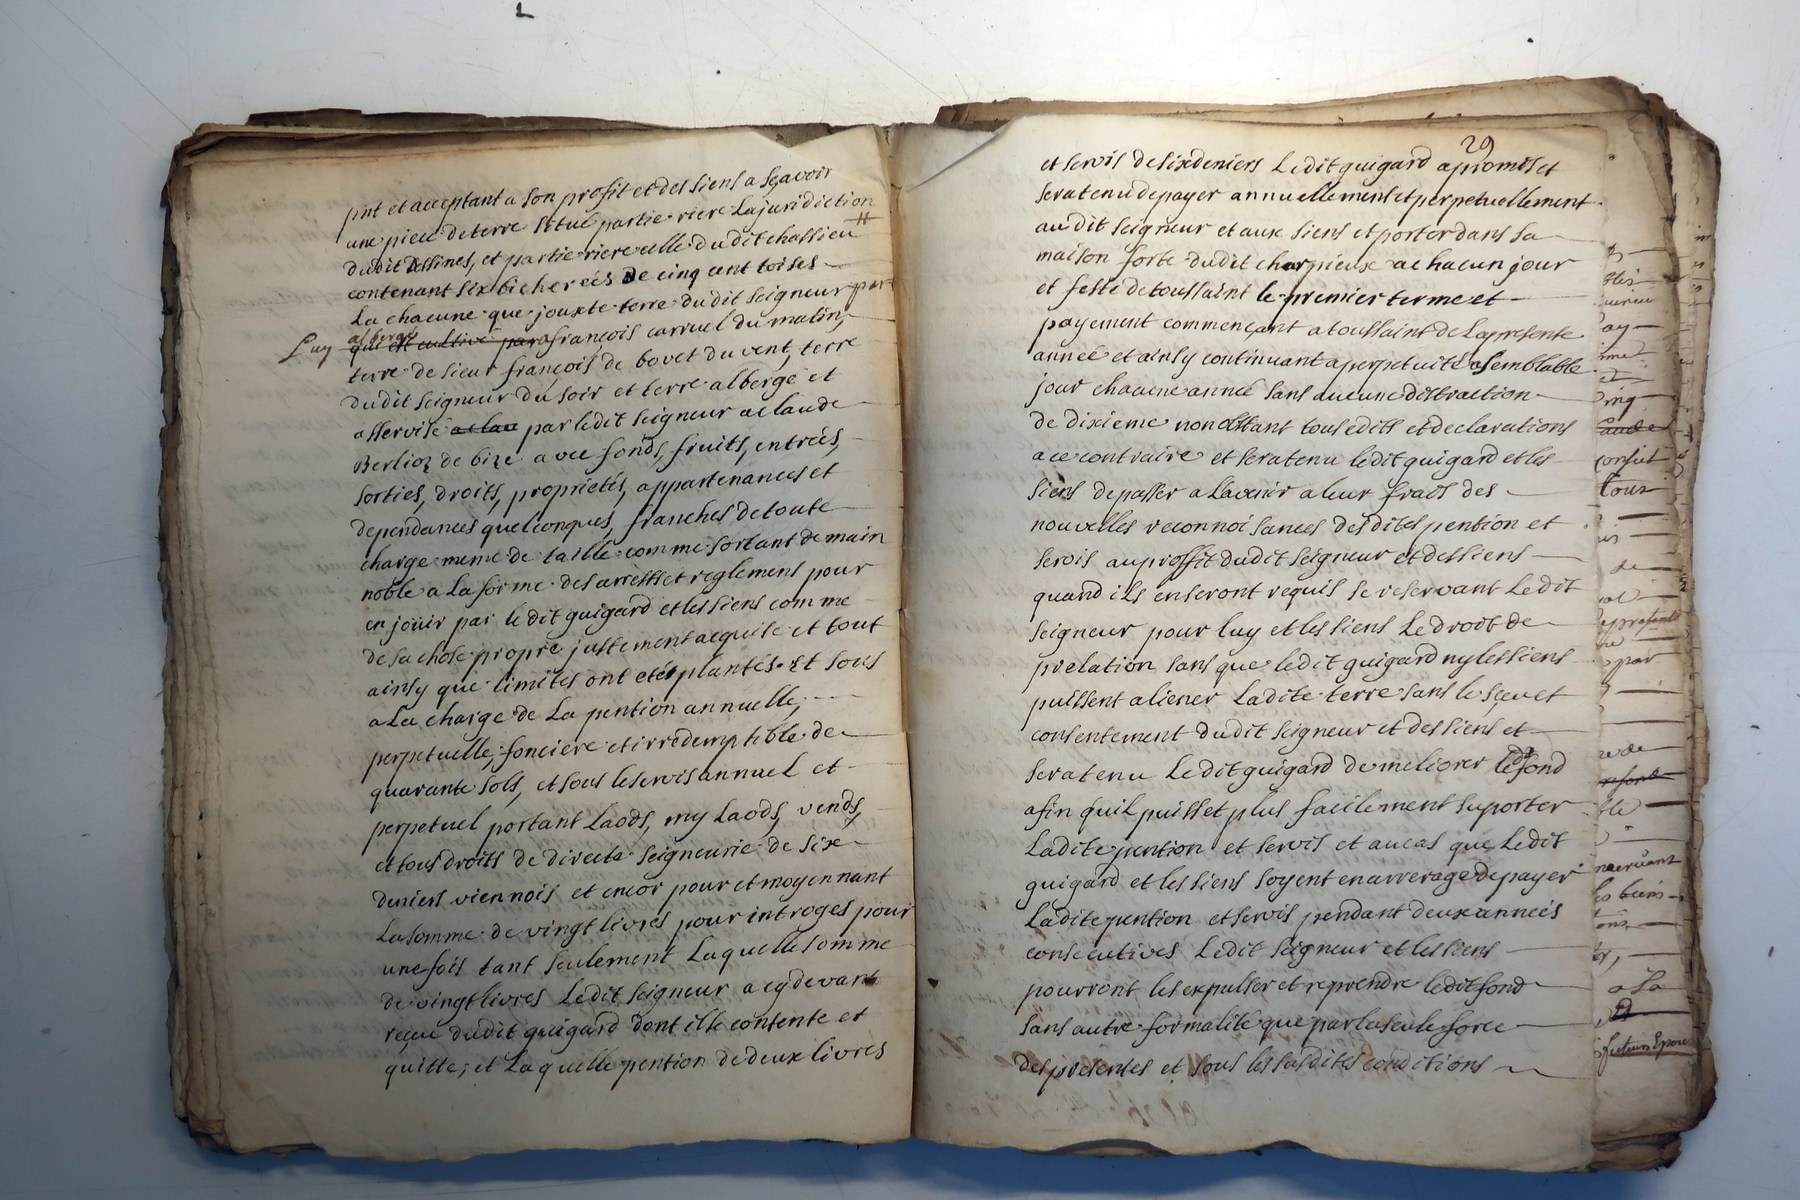 pnt et acceptant a son profit et des siens a sçavoir
une piece de terre situé partie riere la juridiction
dudit dessines, et partie riere celle dudit chassieu #
contenant six bicherées de cinq cent toises
La chacune que jouxte terre dudit seigneur par
Luy albergé
qui est cultivé par a françois carruel du matin,
terre de sieur françois de bovet du vent, terre
dudit seigneur du soir et terre albergé et
asservisé a clau par ledit seigneur a claude
Berlioz de bize avec fonds, fruits, entrées,
sorties, droits, proprietés, appartenances et
dependances quelconques, franches de toute
charge meme de taille comme sortant de main
noble a la forme des arrests et reglemens pour
en jouir par ledit guigard et les siens comme
de sa chose propre justement acquise et tout
ainsy que limites ont eté plantés. Et sous
a La charge de La pention annuelle,
perpetuelle, fonciere et irredemptible de
quarante sols, et sous le servis annuel et
perpetuel portant Laods, my Laods, vends,
et tous droits de directe seigneurie de six
deniers viennois et encor pour et moyennant
La somme de vingt livres pour introges pour
une fois tant seulement Laquelle somme
de vingt livres Ledit seigneur a cy devant
reçue dudit guigard dont il se contente et
quitte; et Laquelle pention de deux livres
29
et servis de six deniers Ledit guigard a promis et
sera tenu de payer annuellement et perpetuellement
audit seigneur et aux siens et porter dans sa
maison forte dudit charpieux a chacun jour
et feste de toussaint le premier terme et
payement commençant a toussaint de La presente
année et ainsy continuant a perpetuité a semblable
jour chacune année sans aucune distraction
de dixieme nonobstant tous edits et declarations
a ce contraire et sera tenu ledit guigard et les
siens de passer a L'avenir a leur frais des
nouvelles reconnoisances desdites pention et
servis au proffit dudit seigneur et des siens
quand ils en seront requis se reservant Ledit
seigneur pour luy et les siens Le droit de
prelation sans que ledit guigard ny les siens
puissent aliener Ladite terre sans le sçeu et
consentement dudit seigneur et des siens et
sera tenu Ledit guigard de meliorer ledit fond
afin qu'il puisset plus facilement suporter
Ladite pention et servis et au cas que Ledit
guigard et les siens soyent en arrerage de payer
Ladite pention et servis pendant deux années
consecutives Ledit seigneur et les siens
pourront les expulser et reprendre ledit fond
sans autre formalité que par la seule force
des presentes et sous les susdites conditions